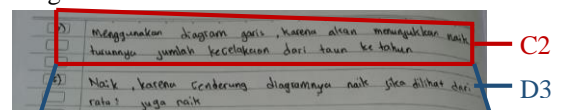 b) menggunakan diagram garis, karena akan menunjukkan naik
turunnya jumlah kecelakaan dari taun ke tahun
C2
c) Naik, karena cenderung diagramnya naik jika dilihat dari
rata² juga naik
D3